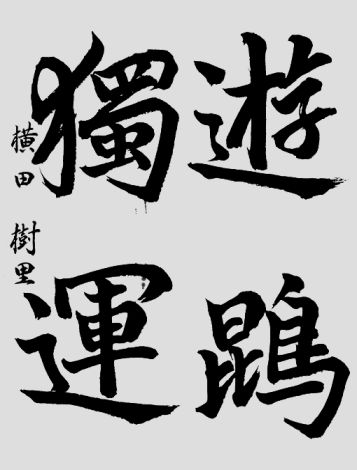 遊鵾
獨運
横田樹里